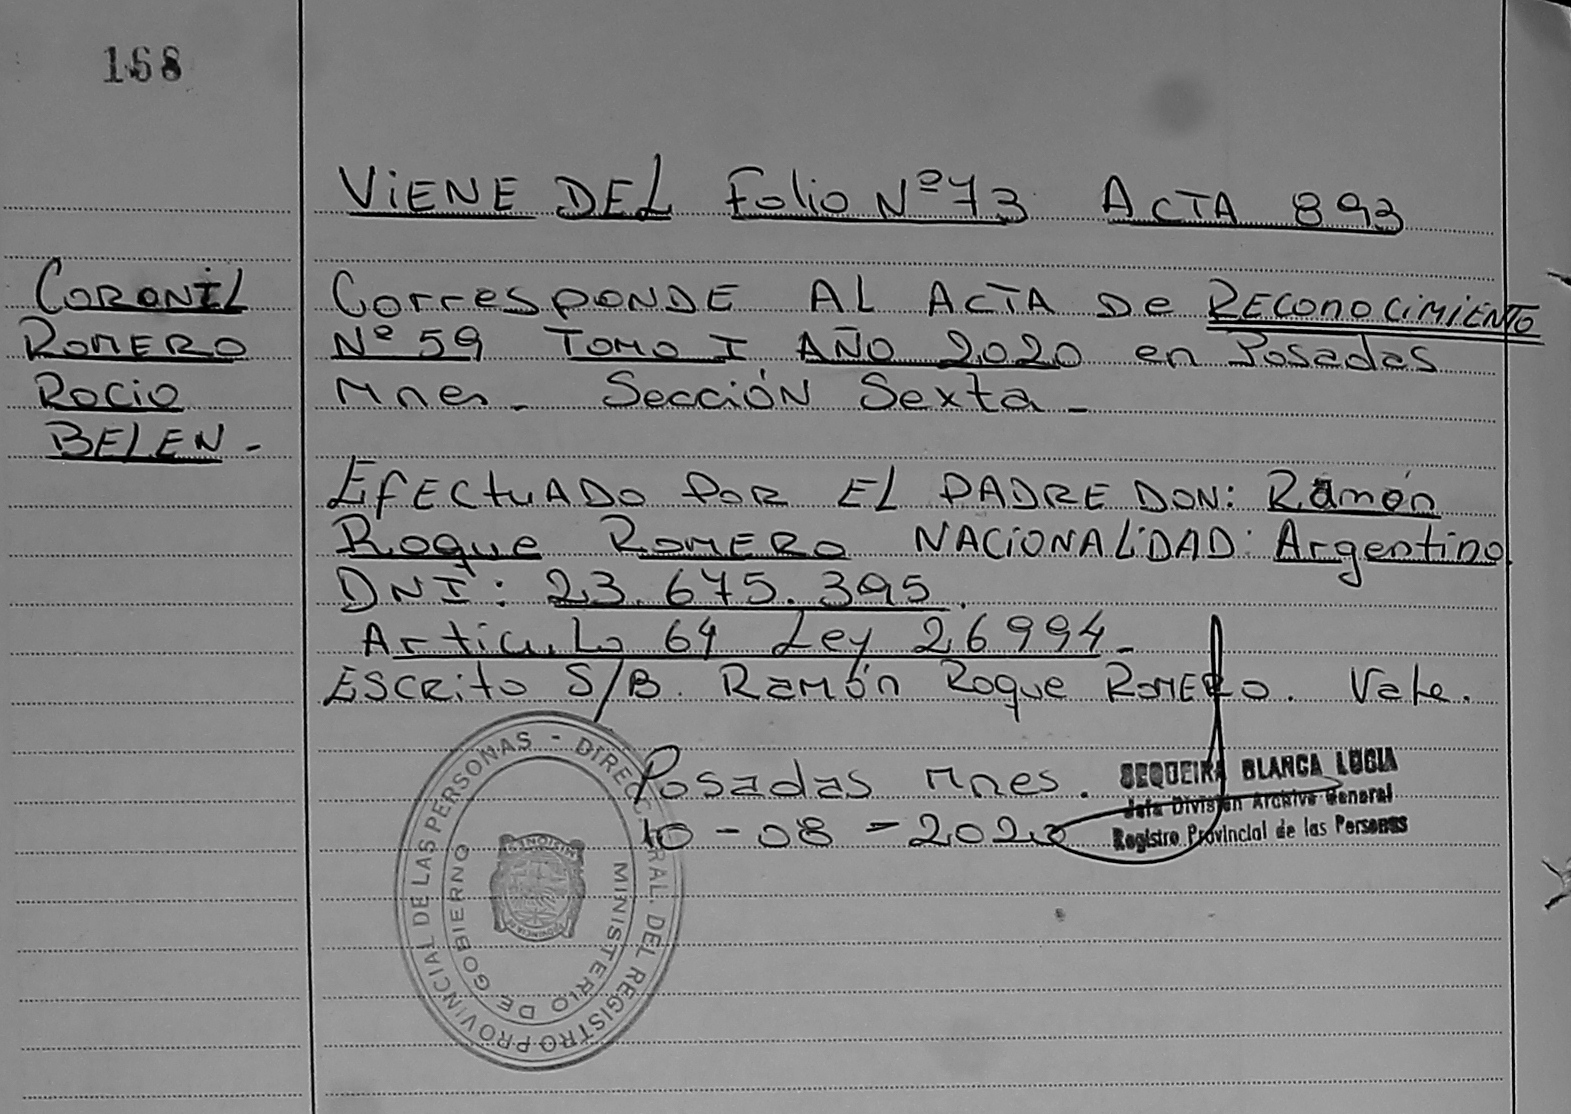 168
VIENE DEL Folio Nº 73 ACTA 893
CORONIL
ROMERO
ROCIO
BELEN.-
CorresPONDE AL ACTA De RECONOCIMIENTO
Nº 59 TOMO I AÑO 2020 en Posadas
Mnes - Sección Sexta -
EfECtuADO POR EL PADRE DON: Ramón
Roque ROMERO NACIONALIDAD: Argentino
DNI: 23.675.395.
Artículo 64 Ley 26994 -
ESCRito S/B. Ramón Roque ROMERO. Vale.
Posadas Mnes.
10-08-2020
SEQUEIRA BLANCA LUCIA
Jefa División Archivo General
Registro Provincial de las Personas
DIRECC RAL. DEL REGISTRO PROVINCIAL DE LAS PERSONAS -
MINISTERIO DE GOBIERNO